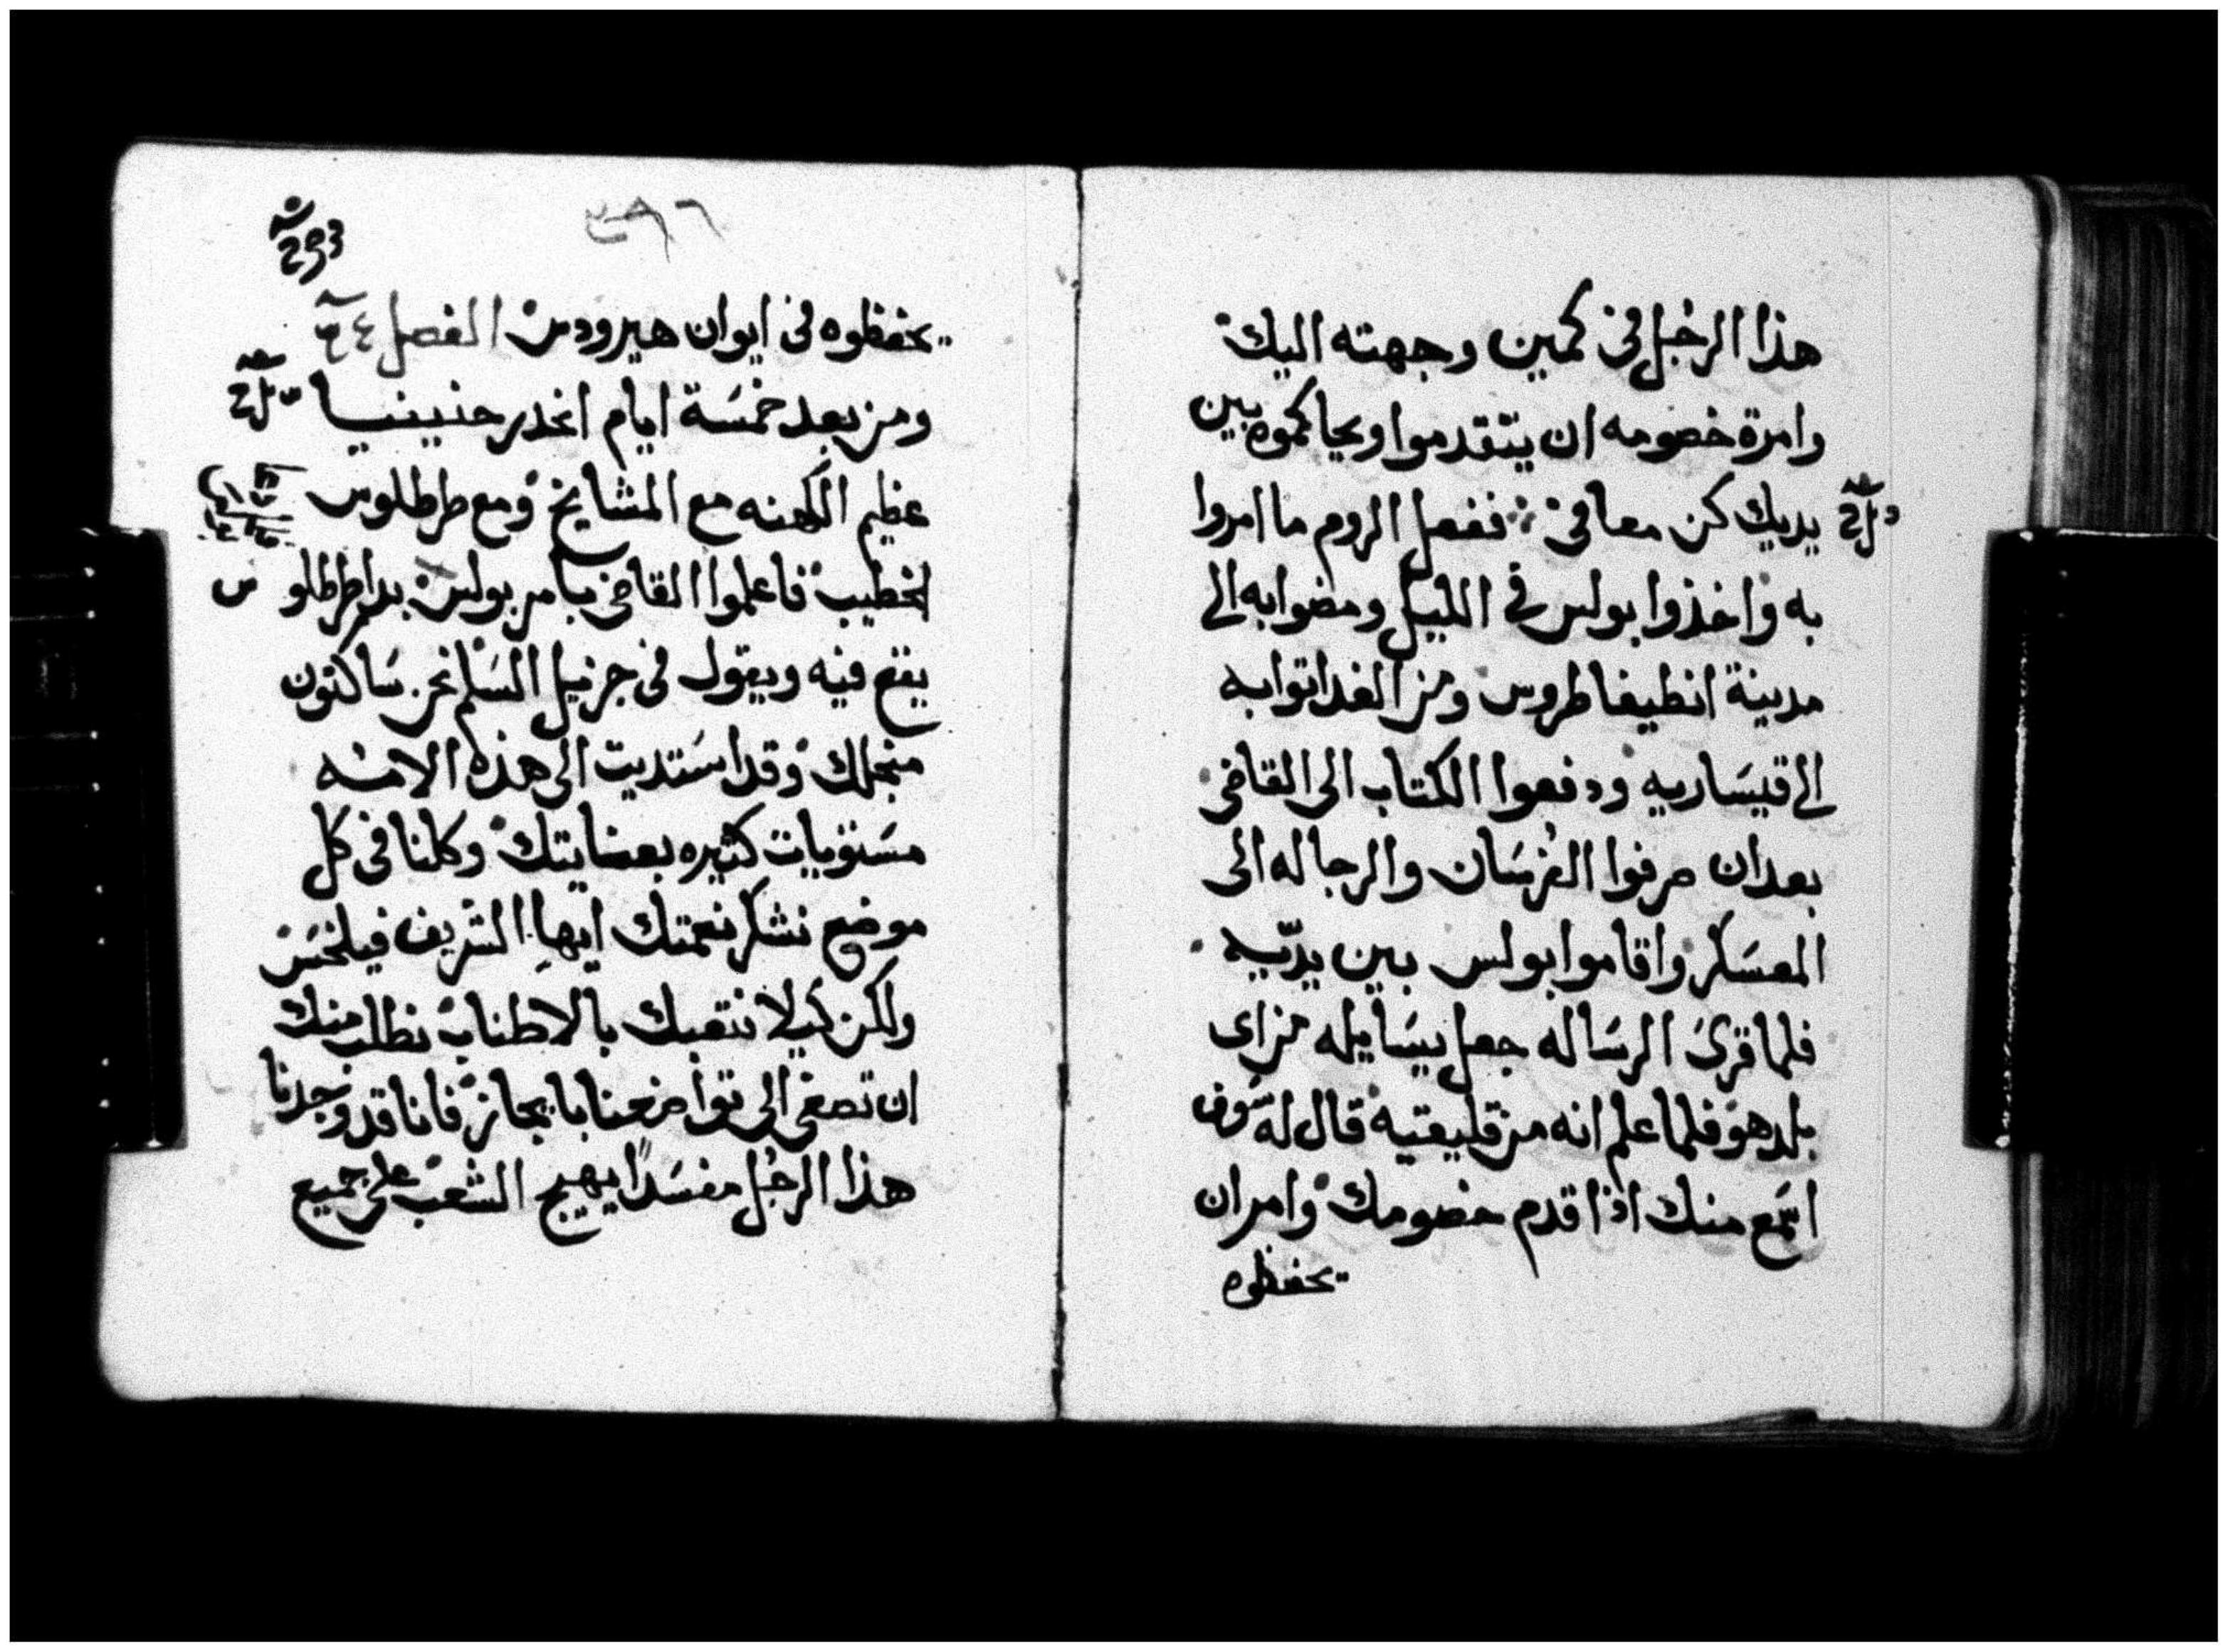 هذا الرجُل في كمين وجهته اليك
وامرة خصومه ان يتقدموا ويحاكموه بين
يديك كن معافى ففعل الروم ما امروا
به واخذوا بولس في الليل ومضوا به الى
مدينة انطيفاطروس ومن الغد اتوا به
الى قيسَاريه ودفعوا الكتاب الى القاضي
بعد ان صرفوا الفرسَان والرجاله الى
المعسَكر واقاموا بولس بين يدّيه
فلما قرىَ الرسَاله جعل يسَايله من اى
بلد هو فلما علم انه من قليقيه قال له سَوف
اسَمع منك اذا قدم خصومك وامر ان
يحفظوه
293
يحفظوه في ايوان هيرودس الفصل
ومن بعد خمسَة ايام انحدر حنينيا
عظيم الكهنه مع المشايخ ومع طرطلوس
الخطيب فاعلموا القاضي بامر بولس بدا طرطلوس
يقع فيه ويقول في جزيل السَلم نحن سَاكنون
منجلك وقد استديت الى هذه الامه
مسَتويات كثيره بعنايتك وكلنا في كل
موضع نشكر نعمتك ايها الشريف فيلخسَ
ولكن كيلا نتعبك بالاطناب نطلب منك
ان تصغى الى تواضعنا بايجاز فانا قد وجدنا
هذا الرجُل مفسَدًا يهيج الشعب على جميع